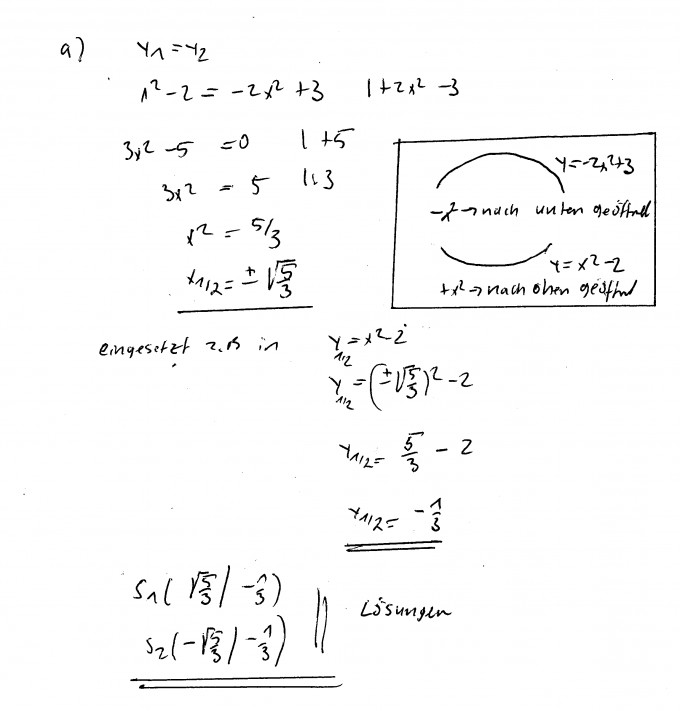 a) y₁ = y₂
x² - 2 = -2x² + 3 | +2x² - 3
3x² - 5 = 0 | +5
3x² = 5 | :3
x² = 5/3
x₁/₂ = ± √(5/3)
y = -2x² + 3
-x² → nach unten geöffnet
y = x² - 2
+x² → nach oben geöffnet
eingesetzt z.B in y₁/₂ = x² - 2
y₁/₂ = (± √(5/3))² - 2
y₁/₂ = 5/3 - 2
y₁/₂ = - 1/3
S₁( √(5/3) | - 1/3 )
S₂( -√(5/3) | - 1/3 )
Lösungen